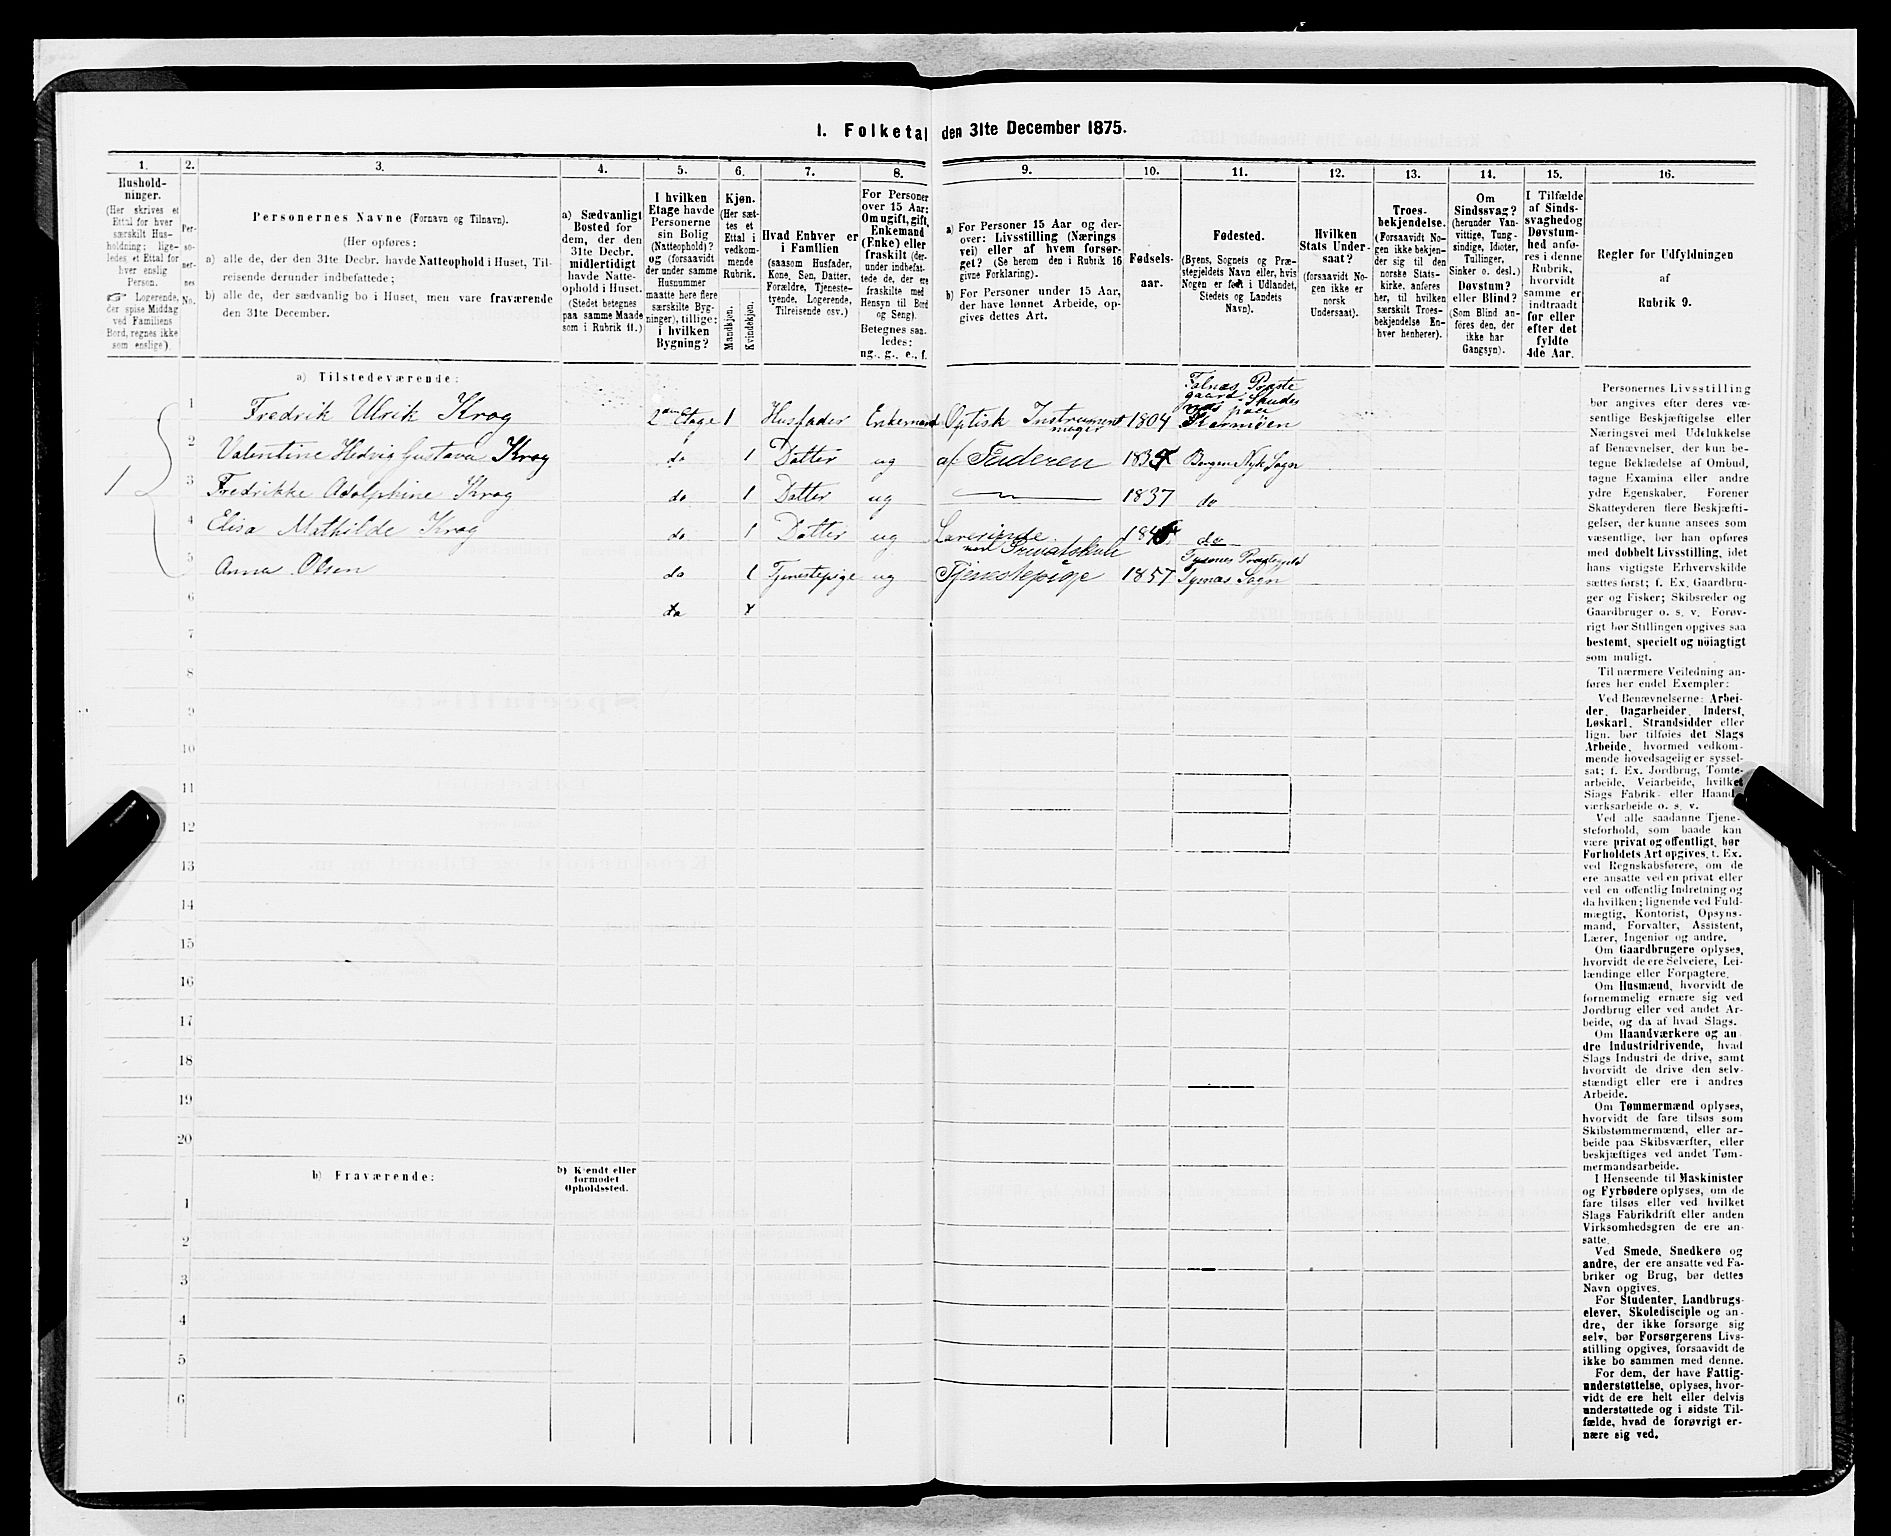 1. Folketal den 31te December 1875.
1. 2. 3. 4. 5. 6. 7. 8. 9. 10. 11. 12. 13. 14. 15. 16.
Hushold-
ninger.
(Her skrives et
Ettal for hver
særskilt Hus-
holdning; lige-
ledes et Ettal for
hver enslig
Person.
☞ Logerende,
der spise Middag
ved Familiens
Bord, regnes ikke
som enslige).
Per-
so-
ner-
nes
No.
Personernes Navne (Fornavn og Tilnavn).
(Her opføres:
a) alle de, der den 31te Decbr. havde Natteophold i Huset, Til-
reisende derunder indbefattede;
b) alle de, der sædvanlig bo i Huset, men vare fraværende
den 31te December.
a) Sædvanligt
Bosted for
dem, der den
31te Decbr.
midlertidigt
havde Natte-
ophold i Huset.
(Stedet betegnes
paa samme Maade
som i Rubrik 11.)
I hvilken
Etage havde
Personerne
sin Bolig
(Natteophold)?
og (forsaavidt
der under samme
Husnummer
maatte høre flere
særskilte Byg-
ninger), tillige:
i hvilken
Bygning?
Kjøn.
(Her sæt-
tes et
Ettal i
vedkom-
mende
Rubrik.
Mandkjøn.
Kvindekjøn.
Hvad Enhver er
i Familien
(saasom Husfader,
Kone, Søn, Datter,
Forældre, Tjeneste-
tyende, Logerende,
Tilreisende osv.)
For Personer
over 15 Aar:
Om ugift, gift,
Enkemand
(Enke) eller
fraskilt (der-
under indbefat-
tede de, der ere
fraskilte med
Hensyn til Bord
og Seng).
Betegnes saa-
ledes:
ug., g., e., f.
a) For Personer 15 Aar og der-
over: Livsstilling (Nærings
vei) eller af hvem forsør-
get? (Se herom den i Rubrik 16
givne Forklaring).
b) For Personer under 15 Aar,
der have lønnet Arbeide, op-
gives dettes Art.
Fødsels-
aar.
Fødested.
(Byens, Sognets og Præ-
stegjeldets Navn eller, hvis
Nogen er født i Udlandet,
Stedets og Landets
Navn).
Hvilken
Stats Under-
saat?
(forsaavidt No-
gen ikke er
norsk
Undersaat).
Troes-
bekjendelse.
(Forsaavidt No-
gen ikke bekjen-
der sig til den
norske Stats-
kirke, anføres
her, til hvilken
særskilt Troes-
bekjendelse En-
hver henhører).
Om
Sindssvag?
(herunder Van-
vittige, Tung-
sindige, Idioter,
Tullinger,
Sinker o. desl.)
Døvstum?
eller Blind?
(Som Blind an-
føres den, der
ikke har
Gangsyn).
I Tilfælde
af Sinds-
svaghed og
Døvstum-
hed anfø-
res i denne
Rubrik,
hvorvidt
samme er
indtraadt
før eller
efter det
fyldte
4de Aar.
Regler for Udfyldningen
af
Rubrik 9.
a) Tilstedeværende:
1
1 Fredrik Ulrik Krog 2den Etage 1 Husfader Enkemand Optisk Instrument
mager 1804 Falnæs Præste
gaard Skudes
næs paa
Karmöen
2 Valentine Hedvig Gustava Krog do 1 Datter ug af Faderen 1835 Bergen Nyk Sogn
3 Fredrikke Adolphine Krog do 1 Datter ug — 1837 do
4 Elisa Mathilde Krog do 1 Datter ug Lærerinde
ved Privatskole do
5 Anna Olsen do 1 Tjenestepige ug Tjenestepige 1857 Sogn
6 do
7
8
9
10
11
12
13
14
15
16
17
18
19
20
b) Fraværende:
b) Kjendt eller
formodet
Opholdssted.
1
2
3
4
5
6
Personernes Livsstilling
bør angives efter deres væ-
sentlige Beskjæftigelse eller
Næringsvei med Udelukkelse
af Benævnelser, der kun be-
tegne Beklædelse af Ombud,
tagne Examina eller andre
ydre Egenskaber. Forener
Skatteyderen flere Beskjæfti-
gelser, der kunne ansees som
væsentlige, bør han opføres
med dobbelt Livsstilling, idet
hans vigtigste Erhvervskilde
sættes først; f. Ex. Gaardbru-
ger og Fisker; Skibsreder og
Gaardbruger o. s. v. Forøv-
rigt bør Stillingen opgives saa
bestemt, specielt og nøiagtigt
som muligt.
Til nærmere Veiledning an-
føres her endel Exempler:
Ved Benævnelserne: Arbei-
der, Dagarbeider, Inderst,
Løskarl, Strandsidder eller
lign. bør tilføies det Slags
Arbeide, hvormed vedkom-
mende hovedsagelig er syssel-
sat; f. Ex. Jordbrug, Tomte-
arbeide, Veiarbeide, hvilket
Slags Fabrik- eller Haand-
værksarbeide o. s. v.
Ved alle saadanne Tjene-
steforhold, som baade kan
være privat og offentligt, bør
Forholdets Art opgives, t. Ex.
ved Regnskabsførere, om de
ere ansatte ved en privat eller
ved en offentlig Indretning og
da hvilken; lignende ved Fuld-
mægtig, Kontorist, Opsyns-
mand, Forvalter, Assistent,
Lærer, Ingeniør og andre.
Om Gaardbrugere oplyses,
hvorvidt de ere Selveiere, Lei-
lændinge eller Forpagtere.
Om Husmænd, hvorvidt de
fornemmelig ernære sig ved
Jordbrug eller ved andet Ar-
beide, og da af hvad Slags.
Om Haandværkere og an
dre Industridrivende, hvad
Slags Industri de drive, samt
hvorvidt de drive den selv-
stændigt eller ere i andres
Arbeide.
Om Tømmermænd oplyses,
hvorvidt de fare tilsøs som
Skibstømmermænd, eller ar-
beide paa Skibsværfter, eller
beskjæftiges ved andet Tøm-
mermandsarbeide.
I Henseende til Maskinister
og Fyrbødere oplyses, om de
fare tilsøs eller ved hvilket
Slags Fabrikdrift eller anden
Virksomhedsgren de ere an-
satte.
Ved Smede, Snedkere og
andre, der ere ansatte ved Fa-
briker og Brug, bør dettes
Navn opgives.
For Studenter, Landbrugs-
elever, Skoledisciple og an-
dre, der ikke forsørge sig
selv, bør Forsørgerens Livs-
stilling opgives, forsaavidt de
ikke bo sammen med denne.
For dem, der have Fattig-
understøttelse, oplyses, hvor-
vidt de ere helt eller delvis
understøttede og i sidste Til-
fælde, hvad de forøvrigt er-
nære sig ved.